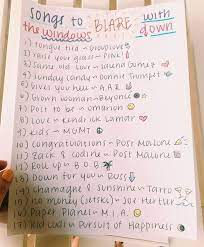 Songs to BLARE with
the windows down
1) tongue tied ~ Grouplove
2) raise your glass ~ P!nk
3) Same Old Love ~ Selena Gomez
4) Sunday Candy ~ Donnie Trumpet
5) Gives you hell ~ A.A.R.
6) grown woman ~ Beyonce
7) Post to be ~ Omarion
8) Love ~ Kendrick Lamar
9) kids ~ MGMT
10) congratulations ~ Post Malone
11) Zack & Codeine ~ Post Malone
12) Roll up ~ B.O.B
13) Down for you ~ Russ
14) champagne & Sunshine ~ Tarro
15) no money (
16) Paper Planes ~ M.I.A.
17) Kid Cudi ~ Pursuit of Happiness